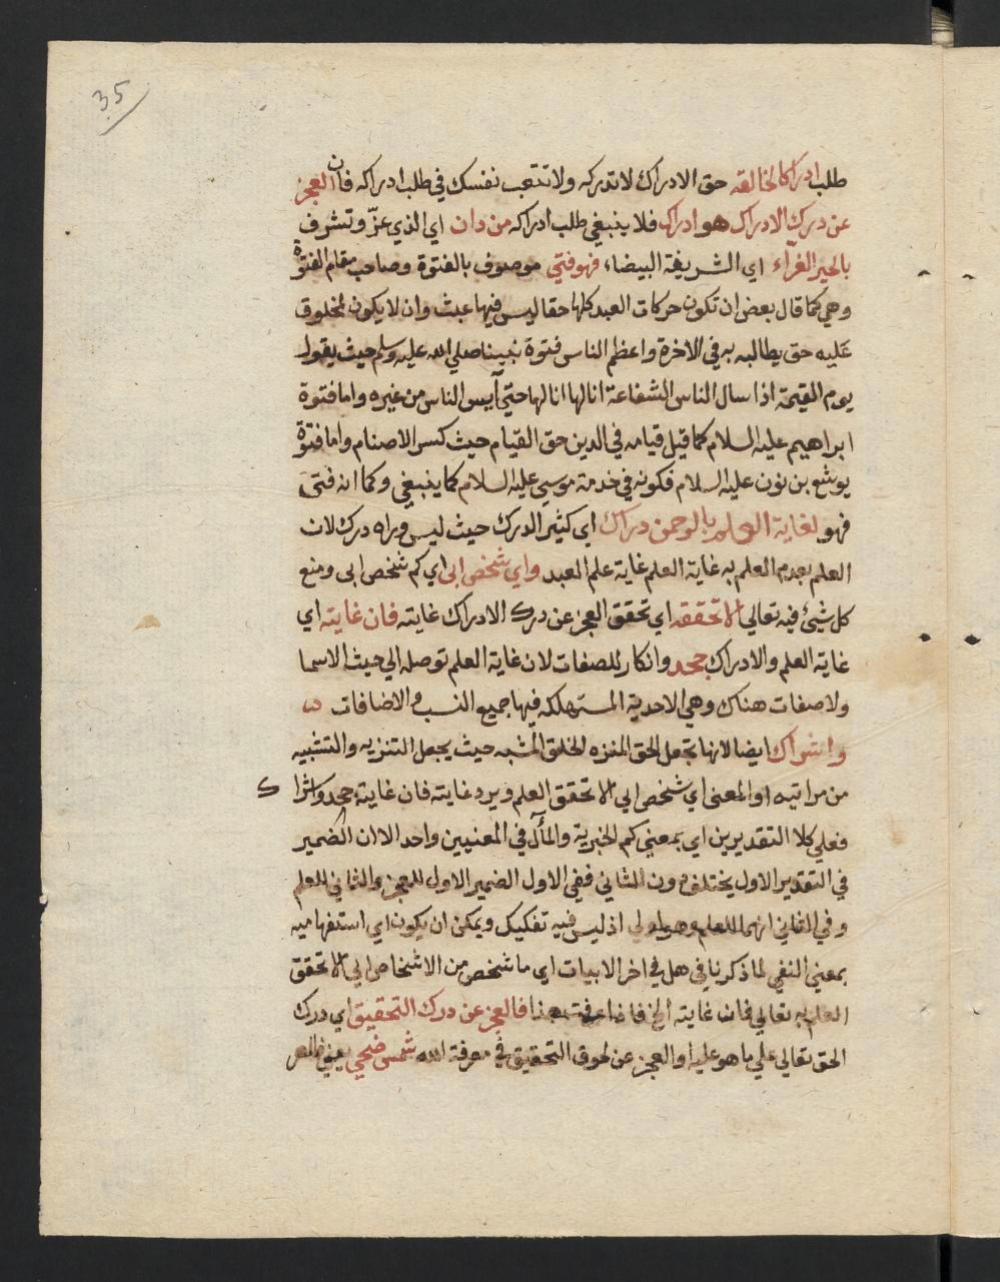 35
طلب ادراكا لخالقه حق الادراك لاتدركه ولا تتعب نفسك في طلب ادراكه فان العجز
عن درك الادراك هو ادراك فلا ينبغي طلب ادراكه من دان اي الذي عز وتشرف
بالحير الغرآء اي الشريعة البيضاء فهو فتي موصوف بالفتوة وصاحب مقام الفتوة
وهي كما قال بعض ان تكون حركات العبد كلها حقا ليس فيها عبث وان لا يكون لمخلوق
عليه حق يطالبه به في الاخرة واعظم الناس فتوة نبينا صلي الله عليه وسلم حيث يقول
يوم القيمة اذا سال الناس الشفاعة انا لها انا لها حتي آيس الناس من غيره واما فتوة
ابراهيم عليه السلام كما قيل قيامه في الدين حق القيام حيث كسر الاصنام واما فتوة
يوشع بن نون عليه السلام فكونه في خدمة موسي عليه السلام كما ينبغي وكما انه فتي
فهو لغاية العلم بالرحمن دراك اي كثير الدرك حيث ليس وراه درك لان
العلم بعدم العلم به غاية العلم غاية علم العبد واي شخص ابى اي كم شخص ابى ومنع
كل شيئ فيه تعالي الا تحققه اي تحقق العجز عن درك الادراك غايته فان غايته اي
غاية العلم والادراك جحد وانكار للصفات لان غاية العلم توصله الي حيث لا سما
ولا صفات هناك وهي الاحدية المستهلكه فيها جميع النسب والاضافات
واشراك ايضا لانها تجعل الحق المنزه الخلق المشبه حيث يجعل التنزيه والتشبيه
من مراتبه او المعنى اي شخص ابي الا تحقق العلم ويرد غايته فان غايته جحد واشراك
فعلي كلا التقديرين اي بمعني كم الخبرية والمآل في المعنيين واحد الا ان الضمير
في التقدير الاول يختلف دون الثاني ففي الاول الضمير الاول للعجز والثاني للعلم
وفي الثاني انهما للعلم وهو اولي اذ ليس فيه تفكيك ويمكن ان يكون اي استفهاميه
بمعني النفي لما ذكرنا في هل في اخر الابيات اي ما شخص من الاشخاص ابي الا تحقق
العلم به تعالي فان غايته الخ فاذا عرفت هذا فالعجز عن درك التحقيق اي درك
الحق تعالي علي ما هو عليه او العجز عن لحوق التحقيق في معرفة الله شمس ضحي يعني